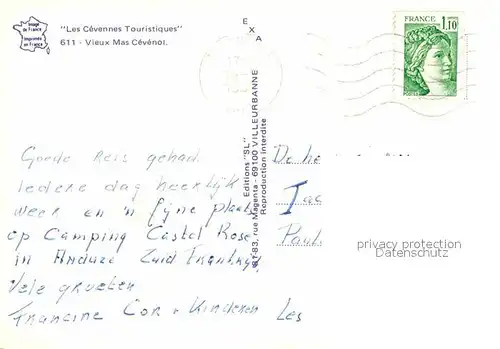 Image
de France
Imprimée
en France
"Les Cévennes Touristiques"
611 - Vieux Mas Cévénol.
EXA
FRANCE
1,10
Editions "SL"
81-83, rue Magenta - 69100 VILLEURBANNE
Reproduction interdite
Goede Reis gehad.
Iedere dag heerlijk
weer en 'n fijne plaats
op Camping Castel Rose
in Anduze Zuid Frankrijk
Vele groeten
Francine Cor + Kinderen
De he
Jac
Paul.
Les
privacy protection
Datenschutz